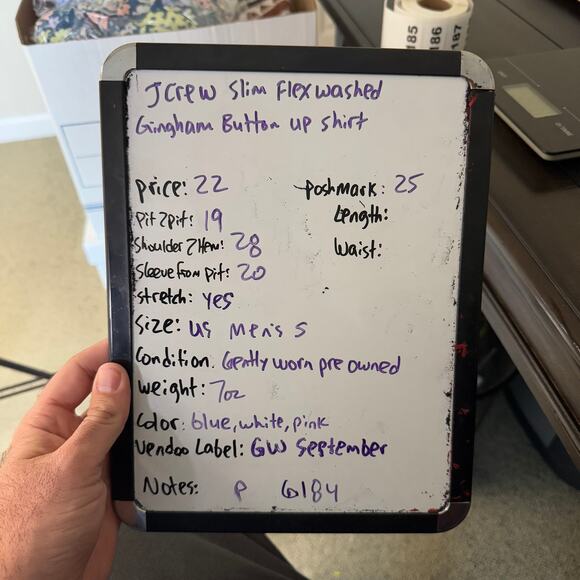 Jcrew Slim Flex washed
Gingham Button up shirt
price: 22
poshmark: 25
Pit 2 pit: 19
Length:
Shoulder 2 Hem: 28
Waist:
Sleeve from pit: 20
stretch: yes
Size: US Men's S
Condition: Gently worn pre owned
weight: 7oz
Color: blue, white, pink
Vendoo Label: GW September
Notes: P 6184
185
186
187